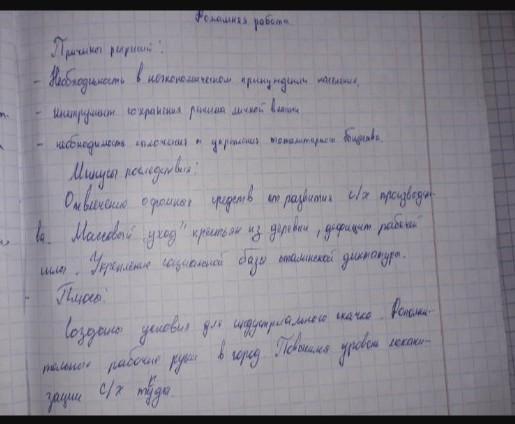 Домашняя работа
Причины репрессий:
- Необходимость в неэкономическом принуждении населения,
- инструмент сохранения режима личной власти
- необходимость сплочения и укрепления тоталитарного общества.
Минусы последствий:
Отвлечение огромных средств от развития с/х производст-
ва. Массовый "уход" крестьян из деревни, дефицит рабочей
силы. Укрепление социальной базы сталинской диктатуры.
- Плюсы:
Созданы условия для индустриального скачка. Дополни-
тельные рабочие руки в город. Повысился уровень механи-
зации с/х труда.